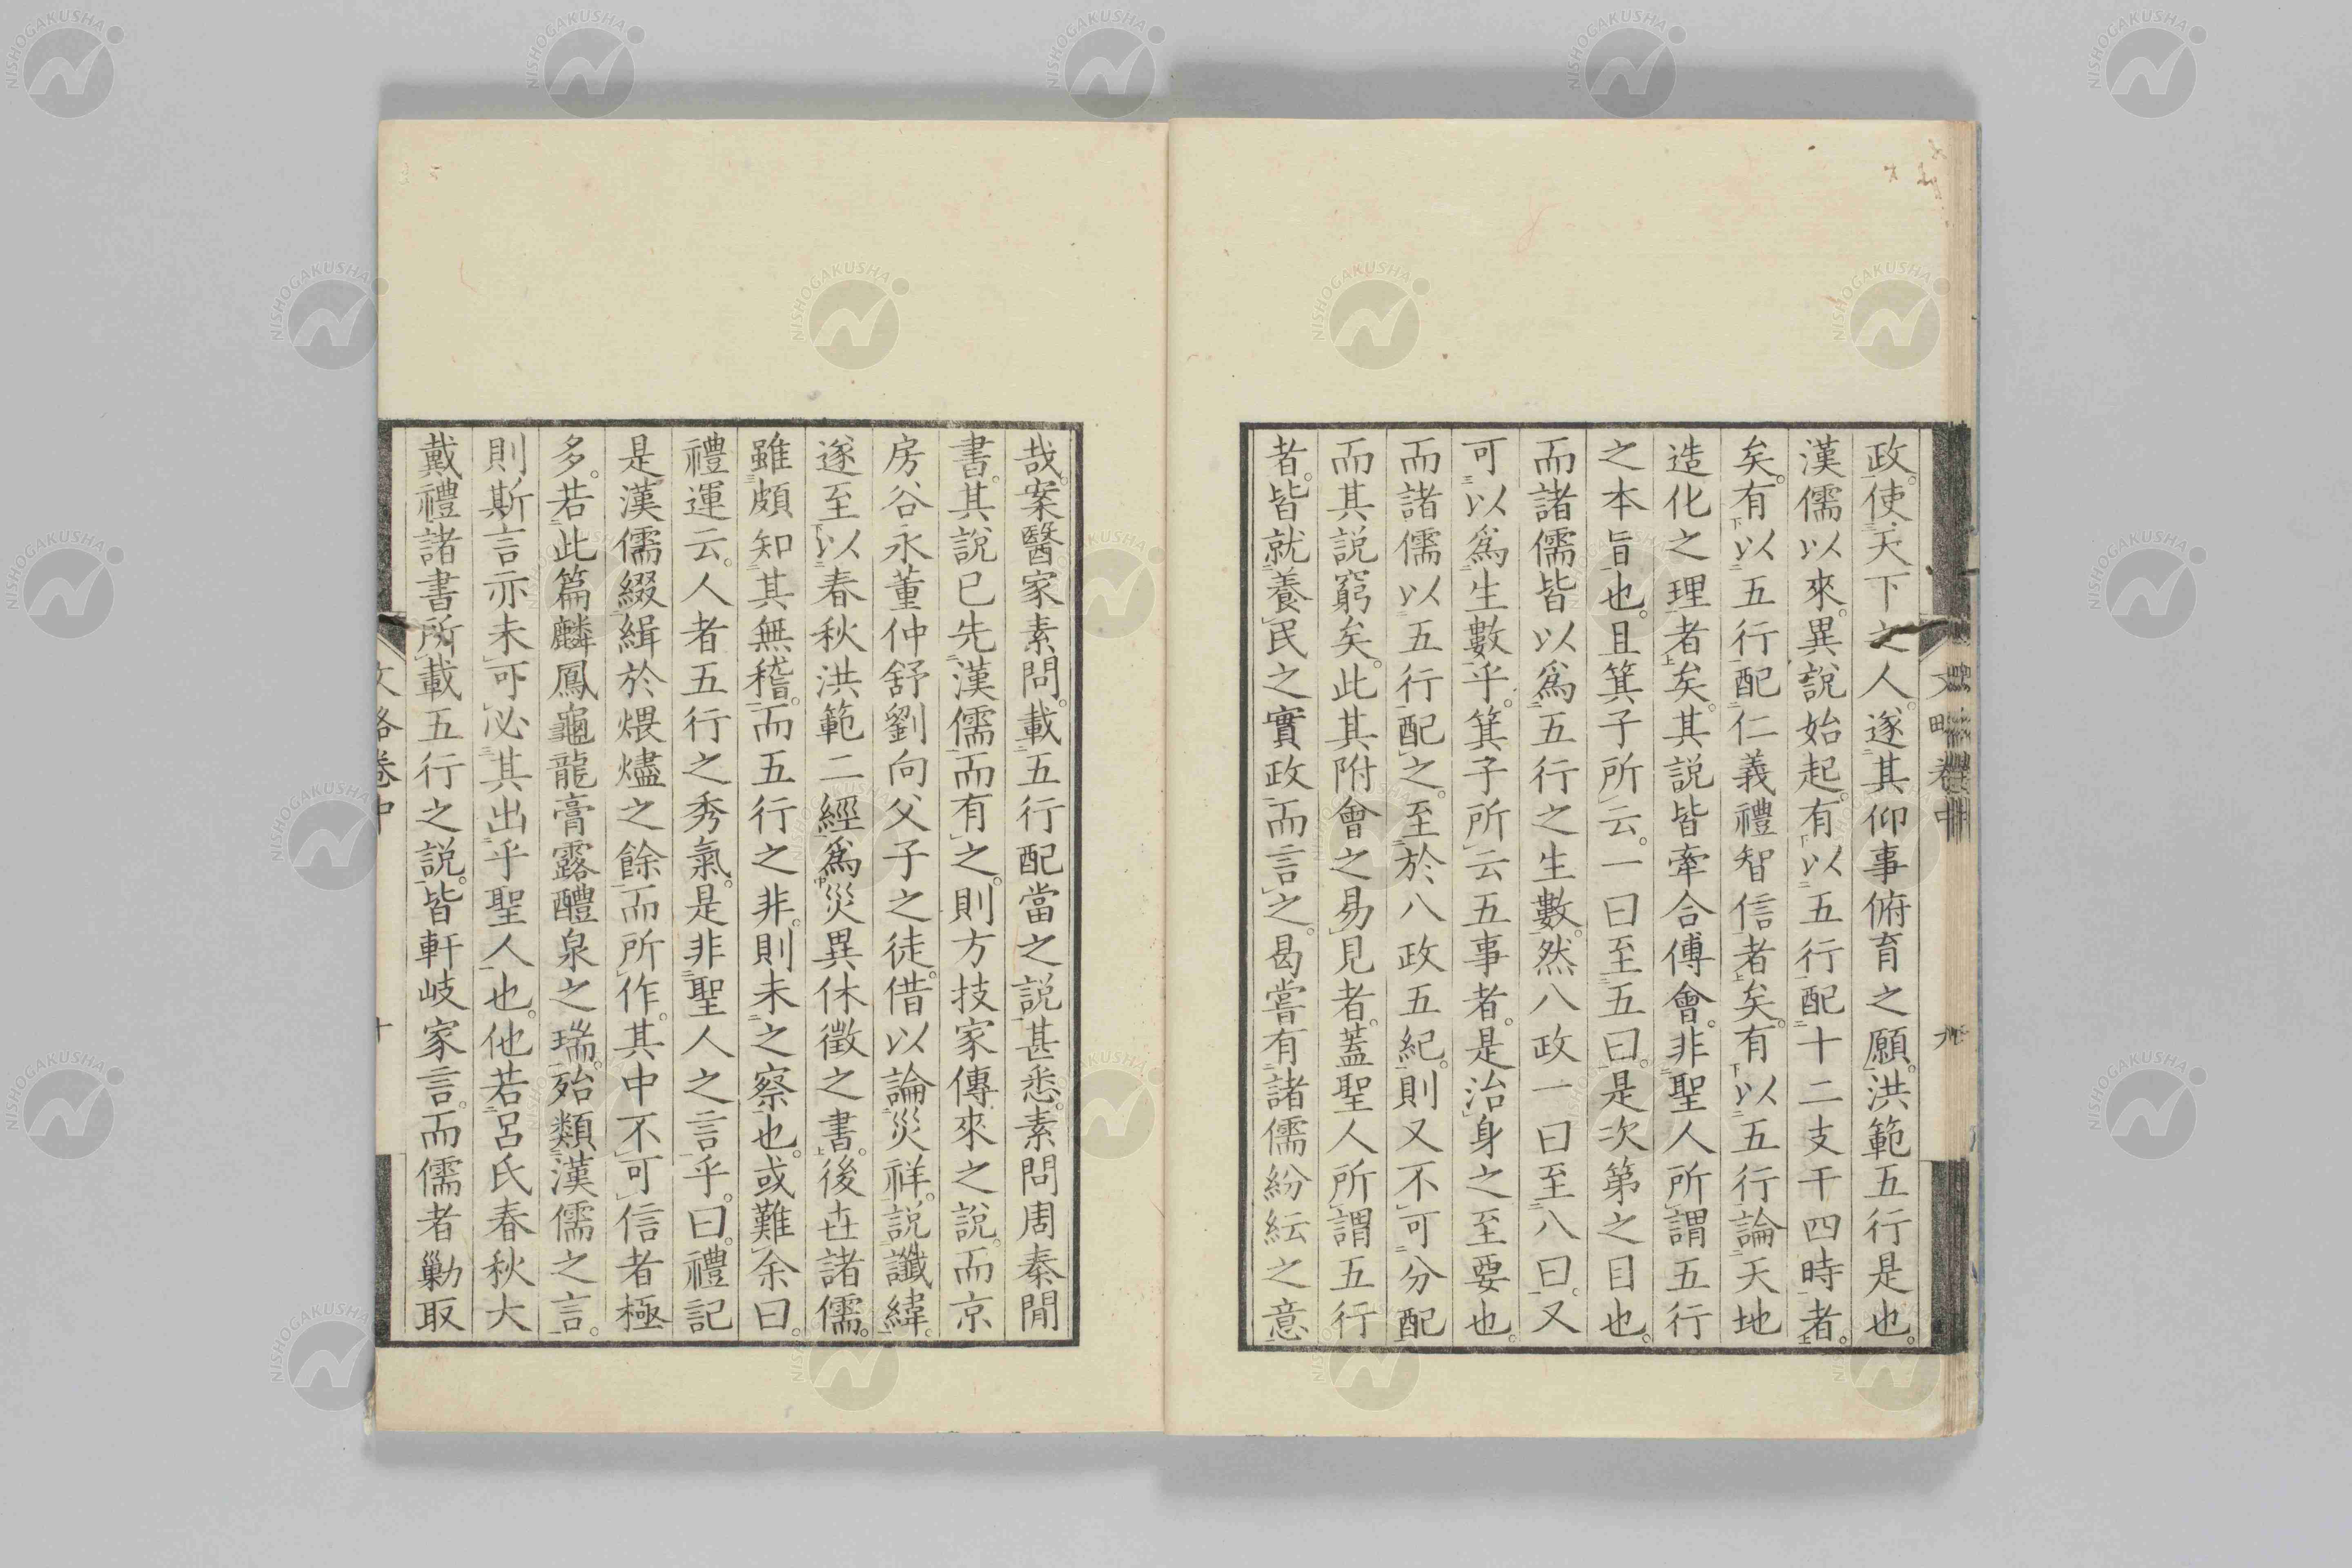 政。使天下之人。遂其仰事俯育之願。洪範五行是也。
漢儒以來。異說始起。有以五行配十二支干四時者。
矣。有以五行配仁義禮智信者矣。有以五行論天地
造化之理者矣。其說皆牽合傅會。非聖人所謂五行
之本旨也。且箕子所云。一曰至五曰。是次第之目也。
而諸儒皆以爲五行之生數。然八政一曰至八曰。又
可以爲生數乎。箕子所云五事者。是治身之至要也。
而諸儒以五行配之。至於八政五紀。則又不可分配
而其說窮矣。此其附會之易見者。蓋聖人所謂五行
者。皆就養民之實政而言之。曷嘗有諸儒紛紜之意
文略卷中
九
哉。案醫家素問。載五行配當之說甚悉。素問周秦閒
書。其說已先漢儒而有之。則方技家傳來之說。而京
房谷永董仲舒劉向父子之徒。借以論災祥。說讖緯。
遂至以春秋洪範二經爲災異休徵之書。後世諸儒。
雖頗知其無稽。而五行之非。則未之察也。或難余曰。
禮運云。人者五行之秀氣。是非聖人之言乎。曰。禮記
是漢儒綴緝於煨燼之餘而所作。其中不可信者極
多。若此篇麟鳳龜龍膏露醴泉之瑞。殆類漢儒之言。
則斯言亦未可必其出乎聖人也。他若呂氏春秋大
戴禮諸書所載五行之說。皆軒岐家言。而儒者勦取
文略卷中
十
NISHOGAKUSHA